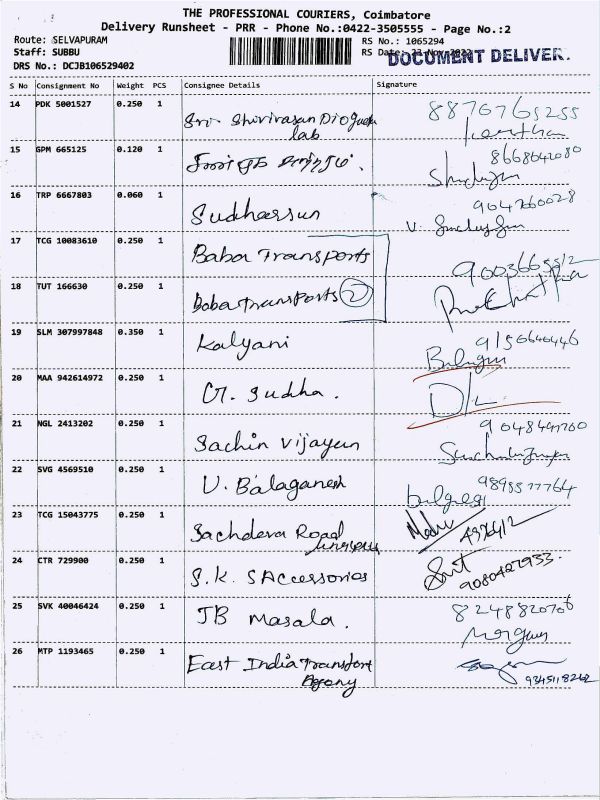 THE PROFESSIONAL COURIERS, Coimbatore
Delivery Runsheet - PRR - Phone No.:0422-3505555 - Page No.:2
Route: SELVAPURAM
RS No.: 1065294
Staff: SUBBU
RS Date:
DOCUMENT DELIVER.
DRS No.: DCJB106529402
S No Consignment No Weight PCS Consignee Details Signature
14 PDK 5001527 0.250 1 Sri Shrivirasan Diognda 8870765255
lab
15 GPM 665125 0.120 1 8668641080
16 TRP 6667803 0.060 1 Sudharsun 9047260028
17 TCG 10083610 0.250 1 Baba Transports
18 TUT 166630 0.250 1 Baba Transports 2
19 SLM 307997848 0.350 1 Kalyani 9150640446
20 MAA 942614972 0.250 1 G. Sudha . D/L
21 NGL 2413202 0.250 1 Sachin Vijayan
22 SVG 4569510 0.250 1 V. Balaganesh 9895577764
23 TCG 15043775 0.250 1 Sachdeva Road
24 CTR 729900 0.250 1 S.K. SAccessories 9080427933
25 SVK 40046424 0.250 1 JB Masala . 8248820706
26 MTP 1193465 0.250 1 East India Transport
Agency 9345118262